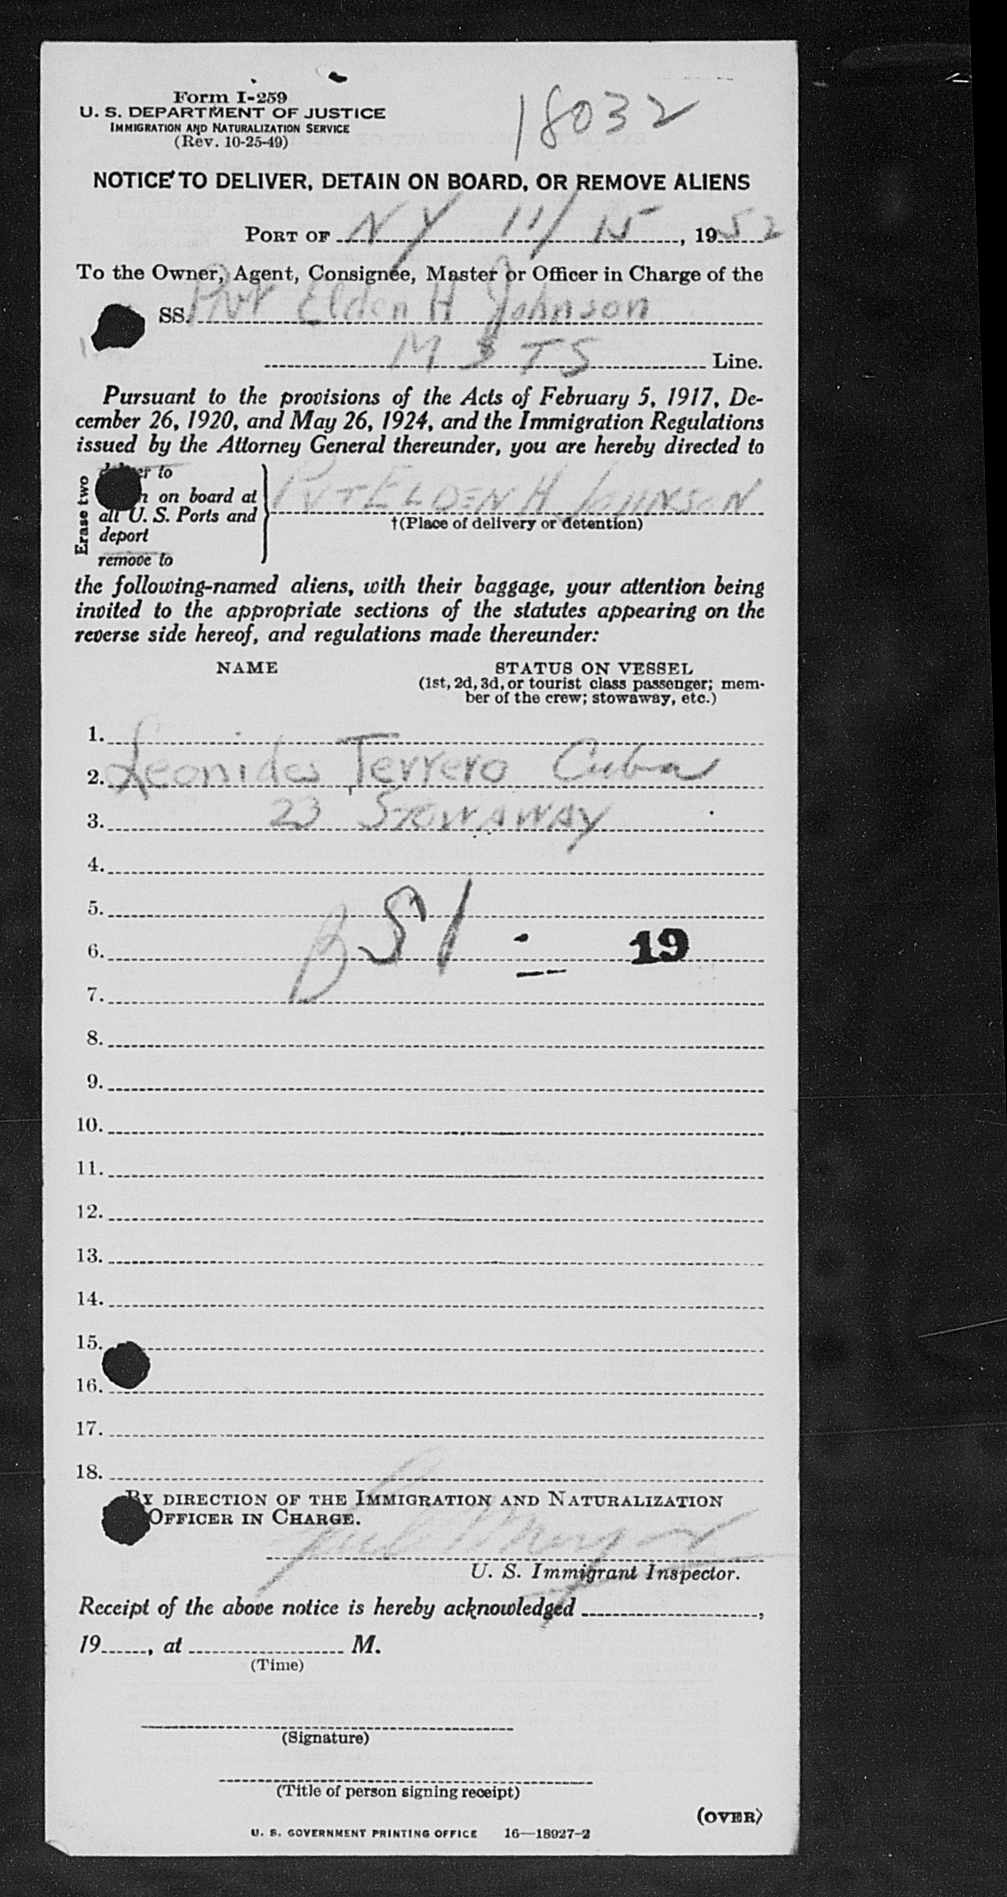 Form I-259
U. S. DEPARTMENT OF JUSTICE
IMMIGRATION AND NATURALIZATION SERVICE
(Rev. 10-25-49)
18032
NOTICE TO DELIVER, DETAIN ON BOARD, OR REMOVE ALIENS
PORT OF NY 11/15, 1952
To the Owner, Agent, Consignee, Master or Officer in Charge of the
SS. Pvt Elden H Johnson
MSTS Line.
Pursuant to the provisions of the Acts of February 5, 1917, De-
cember 26, 1920, and May 26, 1924, and the Immigration Regulations
issued by the Attorney General thereunder, you are hereby directed to
Erase two
to
on board at
all U. S. Ports and
deport
remove to
PVT ELDEN H JOHNSON
†(Place of delivery or detention)
the following-named aliens, with their baggage, your attention being
invited to the appropriate sections of the statutes appearing on the
reverse side hereof, and regulations made thereunder:
NAME STATUS ON VESSEL
(1st, 2d, 3d, or tourist class passenger; mem-
ber of the crew; stowaway, etc.)
1.
2. Leonides Terrero Cuba
3. 23 STOWAWAY
4.
5.
6. BSI 19
7.
8.
9.
10.
11.
12.
13.
14.
15.
16.
17.
18.
BY DIRECTION OF THE IMMIGRATION AND NATURALIZATION
OFFICER IN CHARGE.
U. S. Immigrant Inspector.
Receipt of the above notice is hereby acknowledged ,
19 , at M.
(Time)
(Signature)
(Title of person signing receipt)
(OVER)
U. S. GOVERNMENT PRINTING OFFICE 16—18927-2